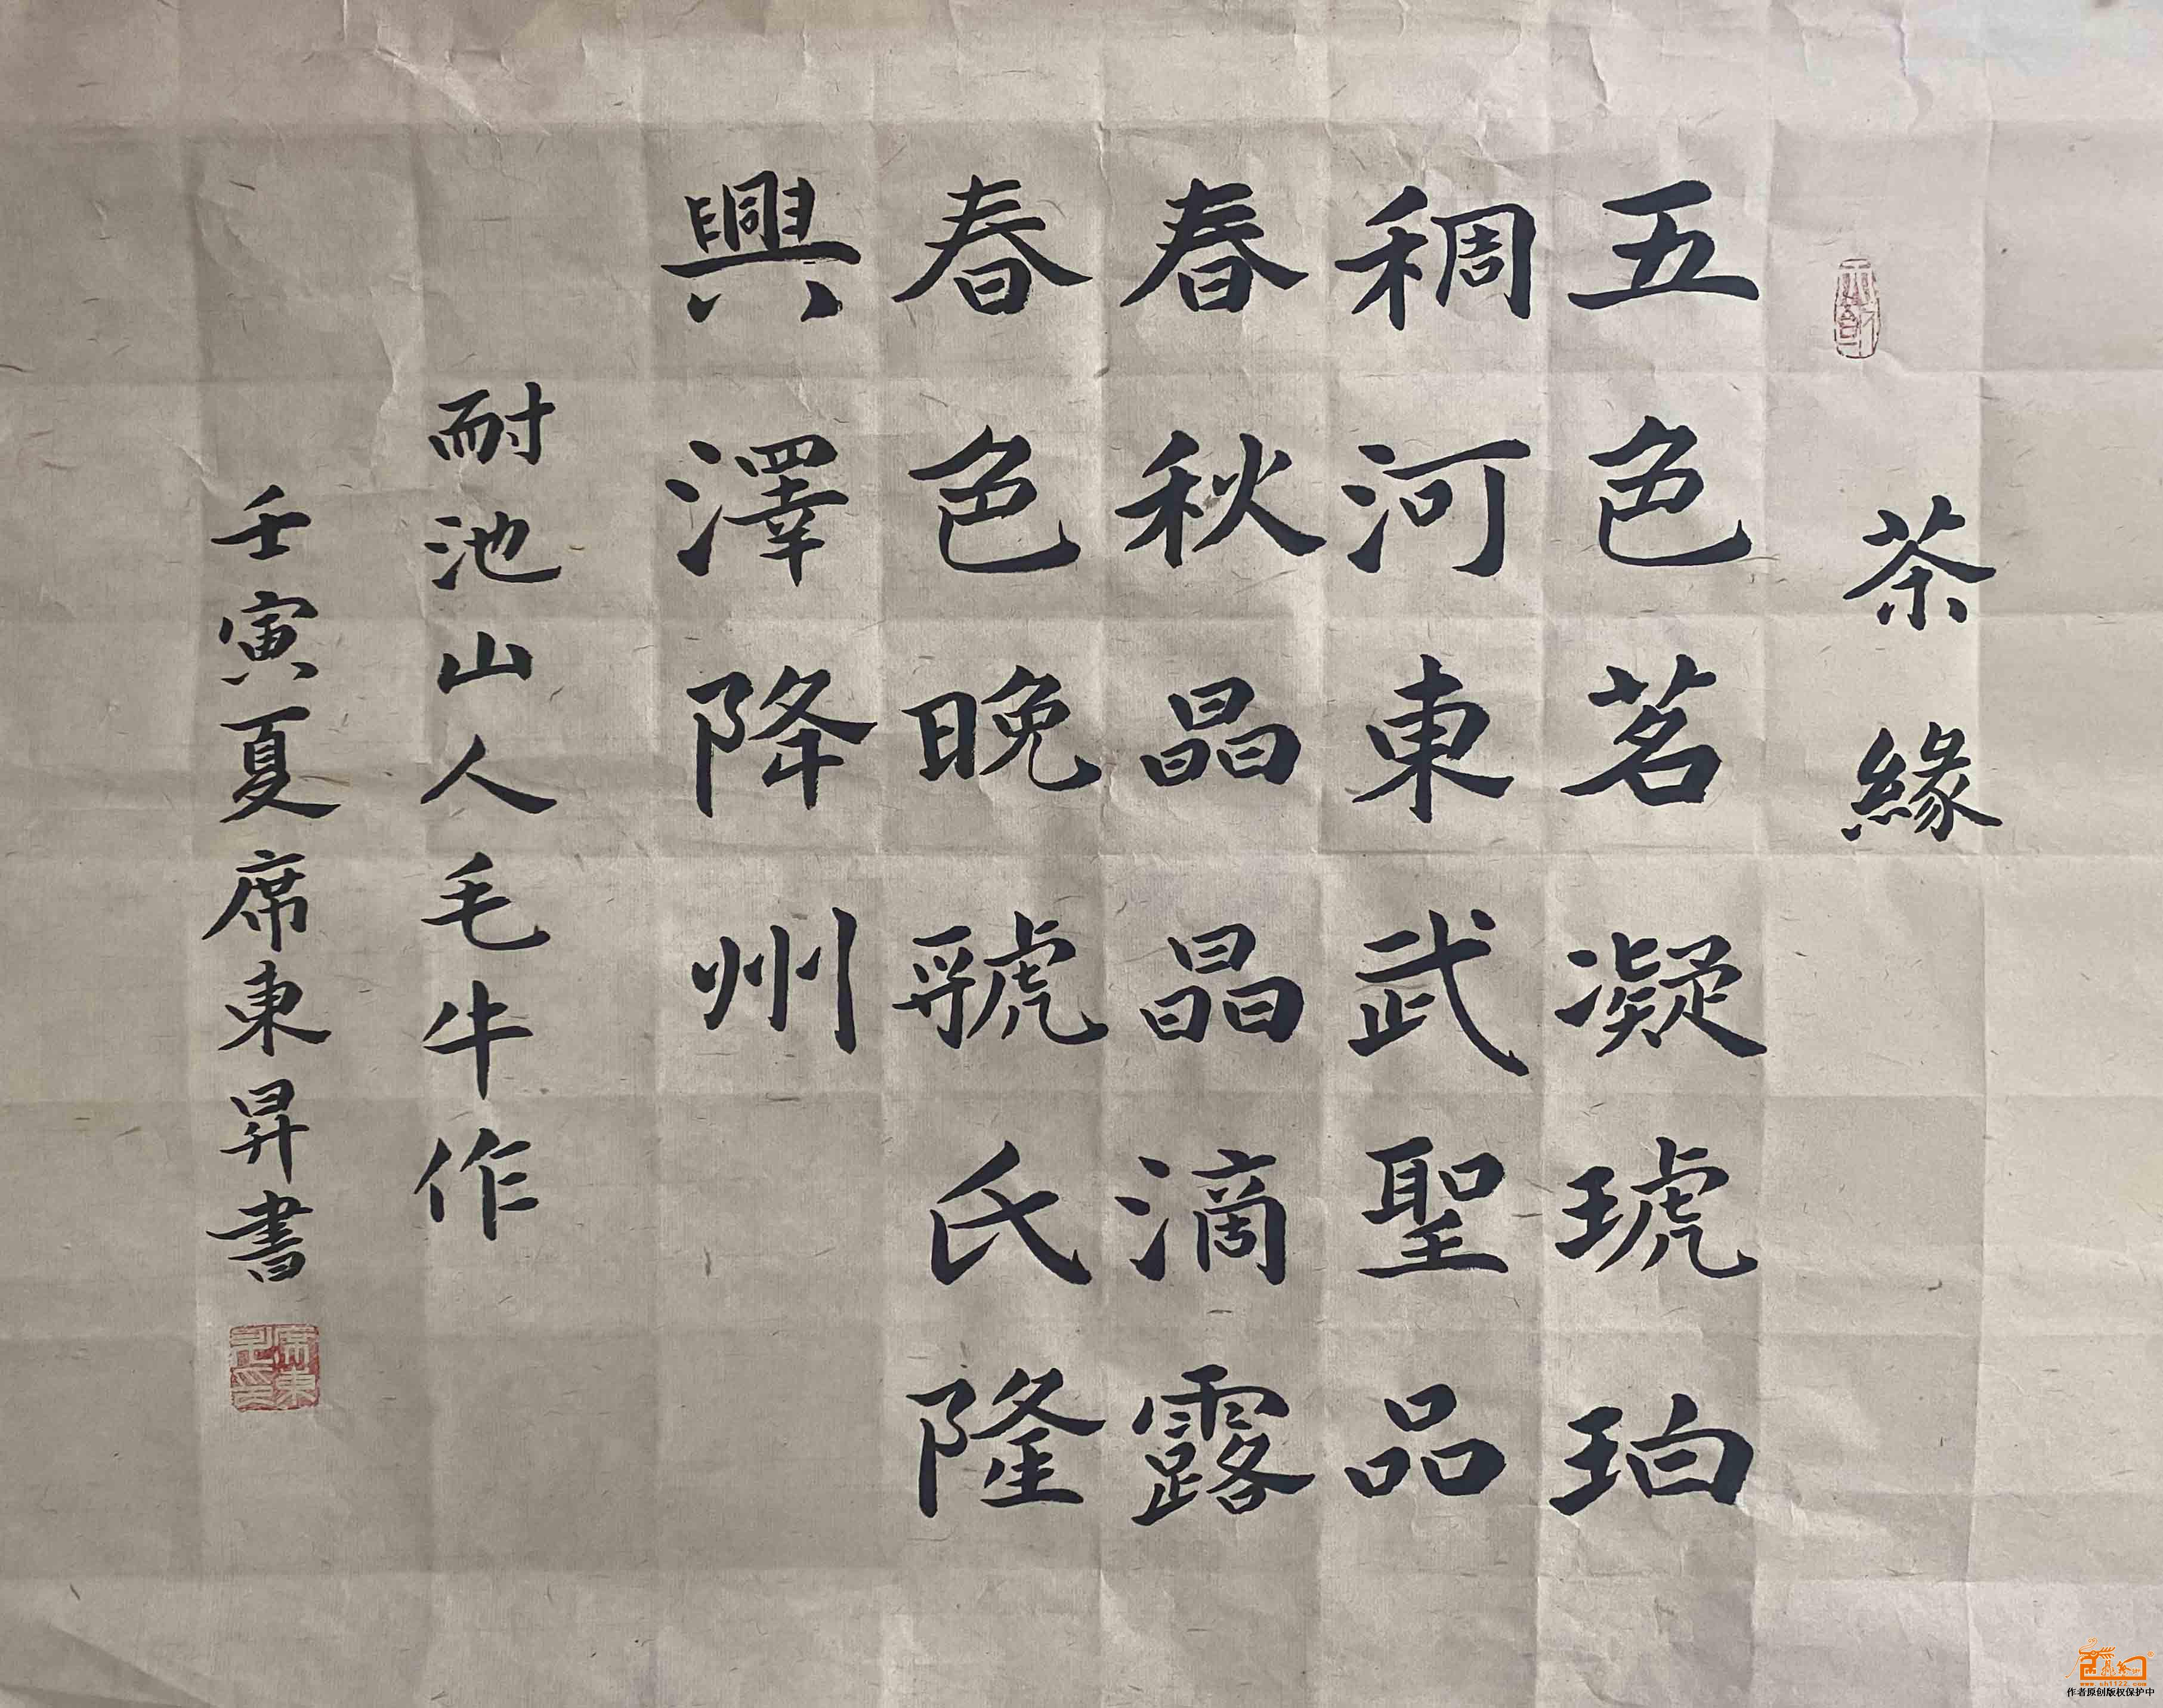 茶緣
五色茗凝琥珀
稠河東武聖品
春秋晶晶滴露
春色晚虢氏隆
興澤降州
耐池山人毛牛作
壬寅夏席東昇書
www.sh1122.com
作者原创版权保护中